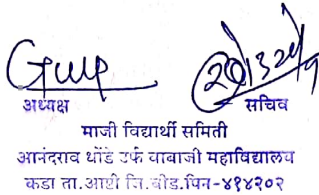 अध्यक्ष सचिव
माजी विद्यार्थी समिती
आनंदराव धोंडे उर्फ बाबाजी महाविद्यालय
कडा ता.आष्टी जि.बीड.पिन-४१४२०२